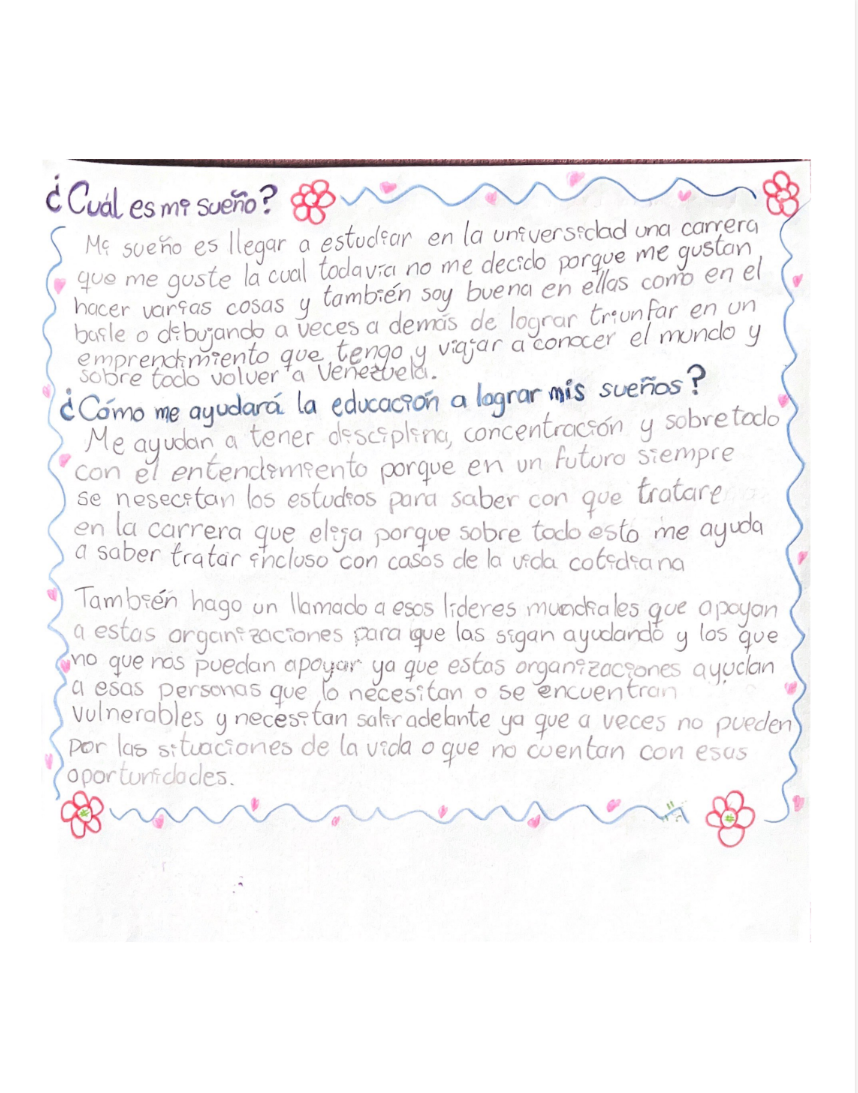 ¿Cuál es mi sueño?
Mi sueño es llegar a estudiar en la universidad una carrera
que me guste la cual todavia no me decido porque me gustan
hacer varias cosas y también soy buena en ellas como en el
baile o dibujando a veces a demás de lograr triunfar en un
emprendimiento que tengo y viajar a conocer el mundo y
sobre todo volver a Venezuela.
¿Cómo me ayudará la educación a lograr mis sueños?
Me ayudan a tener disciplina, concentración y sobre todo
con el entendimiento porque en un futuro siempre
se nesecitan los estudios para saber con que tratare
en la carrera que elija porque sobre todo esto me ayuda
a saber tratar incluso con casos de la vida cotidiana
También hago un llamado a esos lideres mundiales que apoyan
a estas organizaciones para que las sigan ayudando y los que
no que nos puedan apoyar ya que estas organizaciones ayudan
a esas personas que lo necesitan o se encuentran
vulnerables y necesitan salir adelante ya que a veces no pueden
por las situaciones de la vida o que no cuentan con esas
oportunidades.